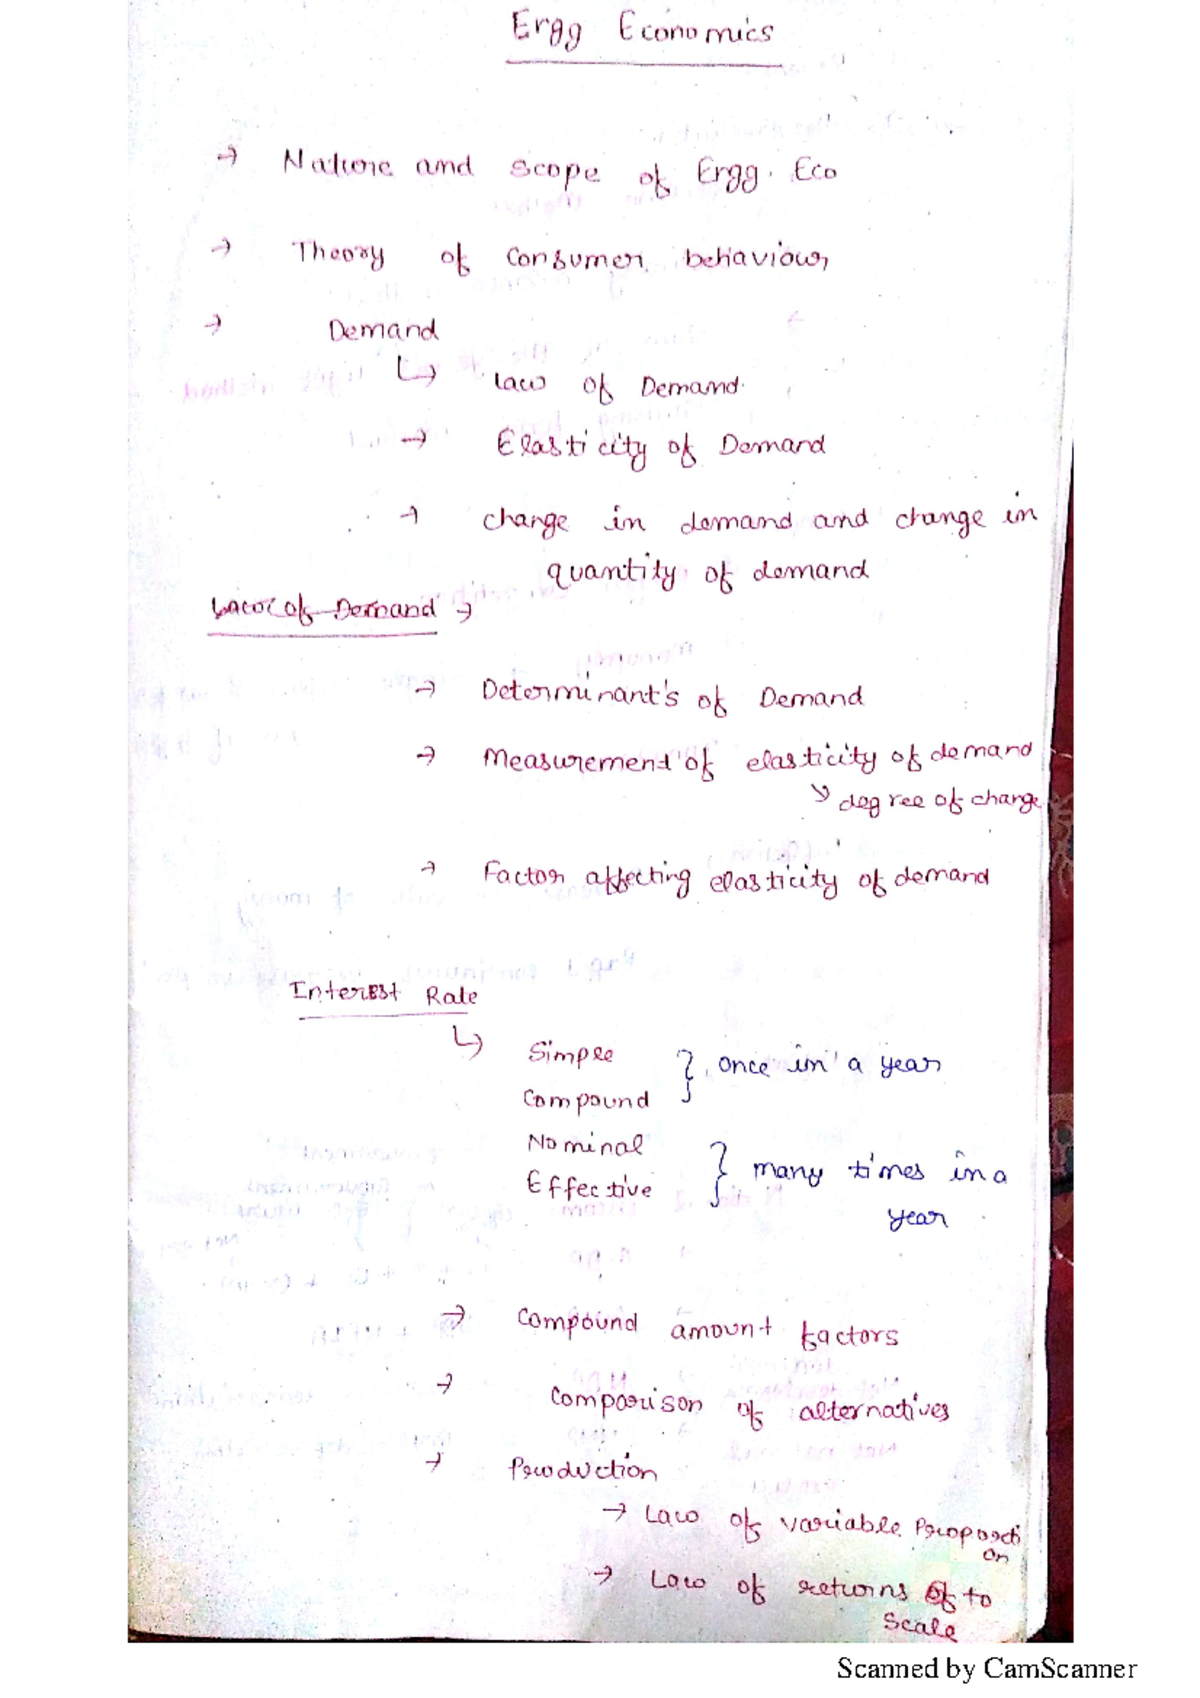 Ergg Economics
→ Nature and scope of Ergg. Eco
→ Theory of consumer behaviour
→ Demand
↳ Law of Demand.
→ Elasticity of Demand
→ change in demand and change in
quantity of demand
Law of Demand →
→ Determinant's of Demand
→ Measurement of elasticity of demand
↘ degree of change
→ Factor affecting elasticity of demand
Interest Rate
↳ Simple } once in a year
Compound
Nominal } many times in a
Effective
year
→ Compound amount factors
→ Comparison of alternatives
→ Production
→ Law of variable Proporti
on
→ Law of returns to
Scale
Scanned by CamScanner